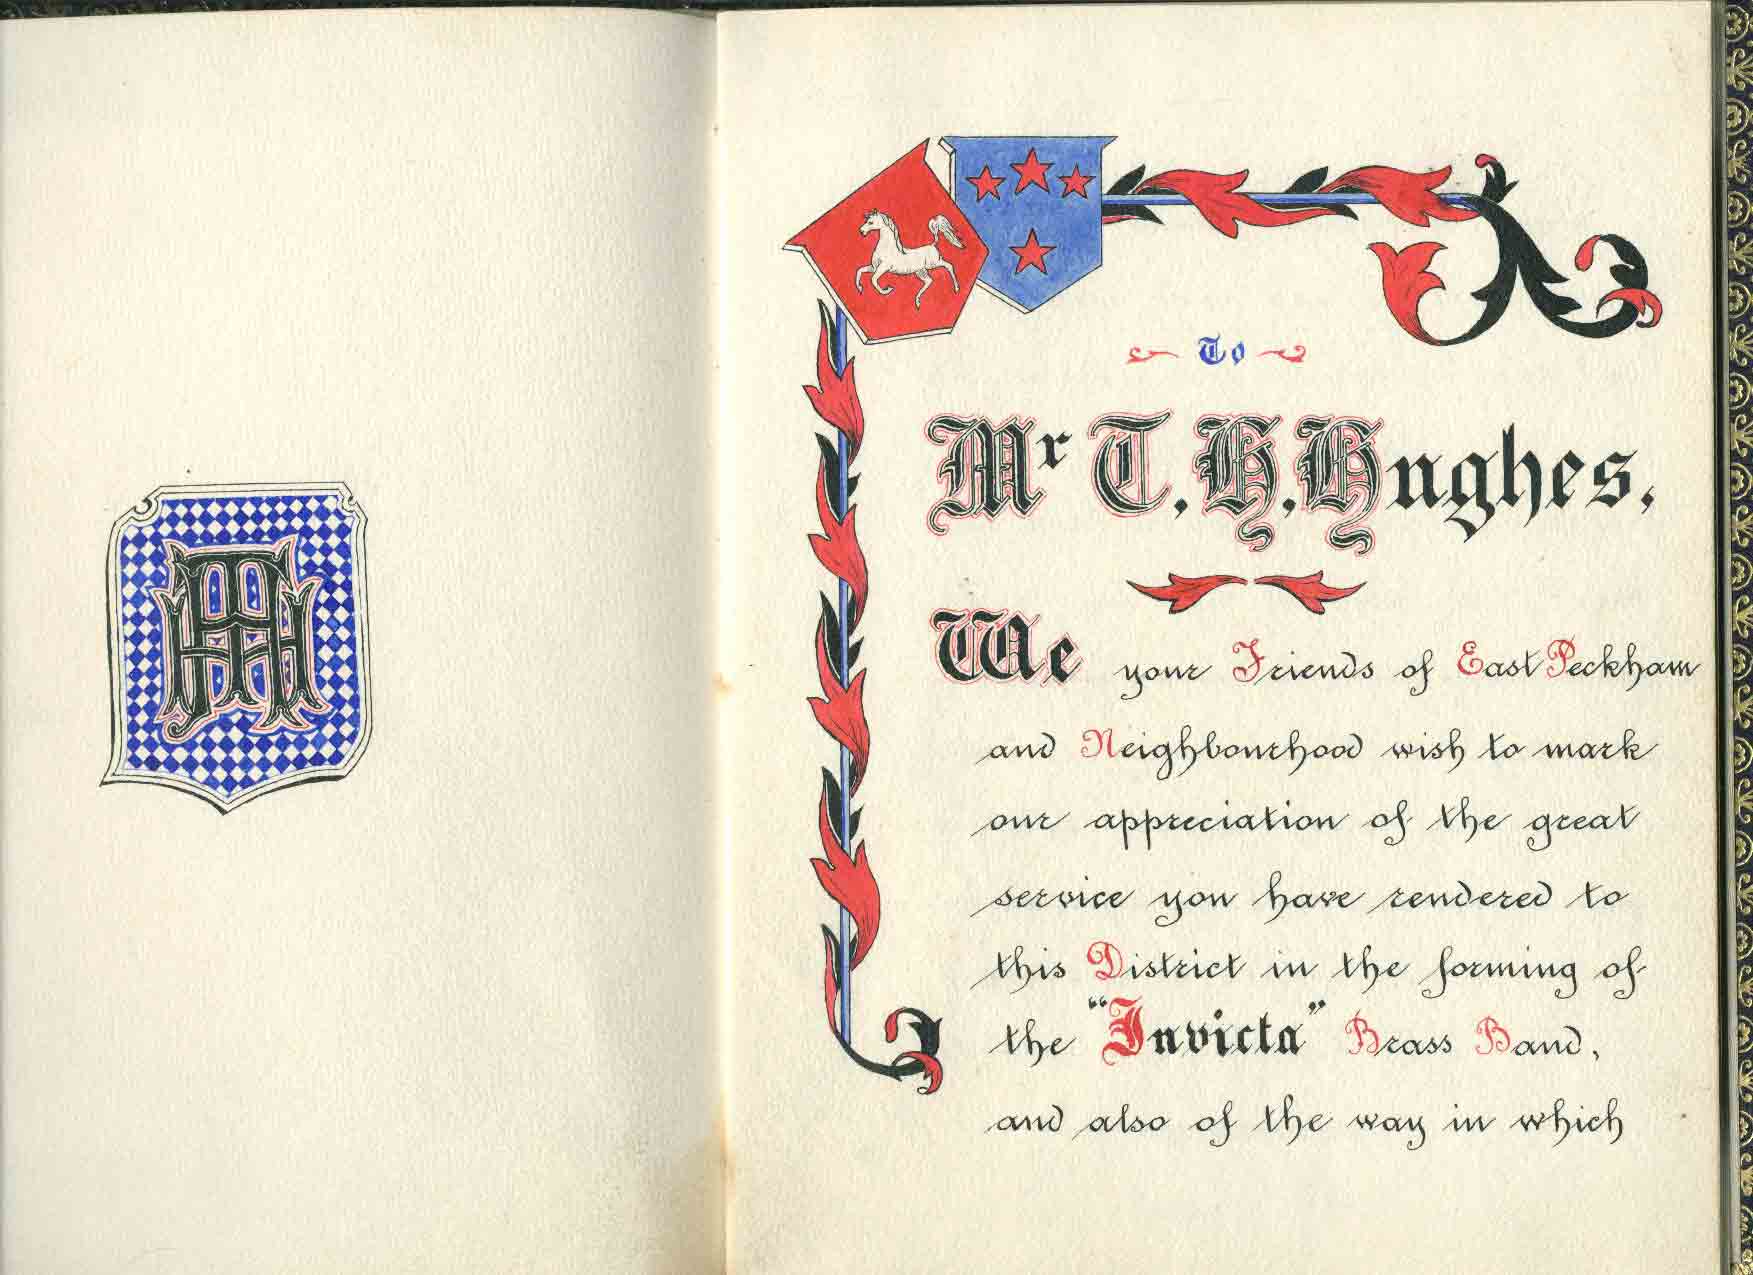 THH
To
Mr T. H. Hughes,
We your Friends of East Peckham
and Neighbourhood wish to mark
our appreciation of the great
service you have rendered to
this District in the forming of
the "Invicta" Brass Band,
and also of the way in which